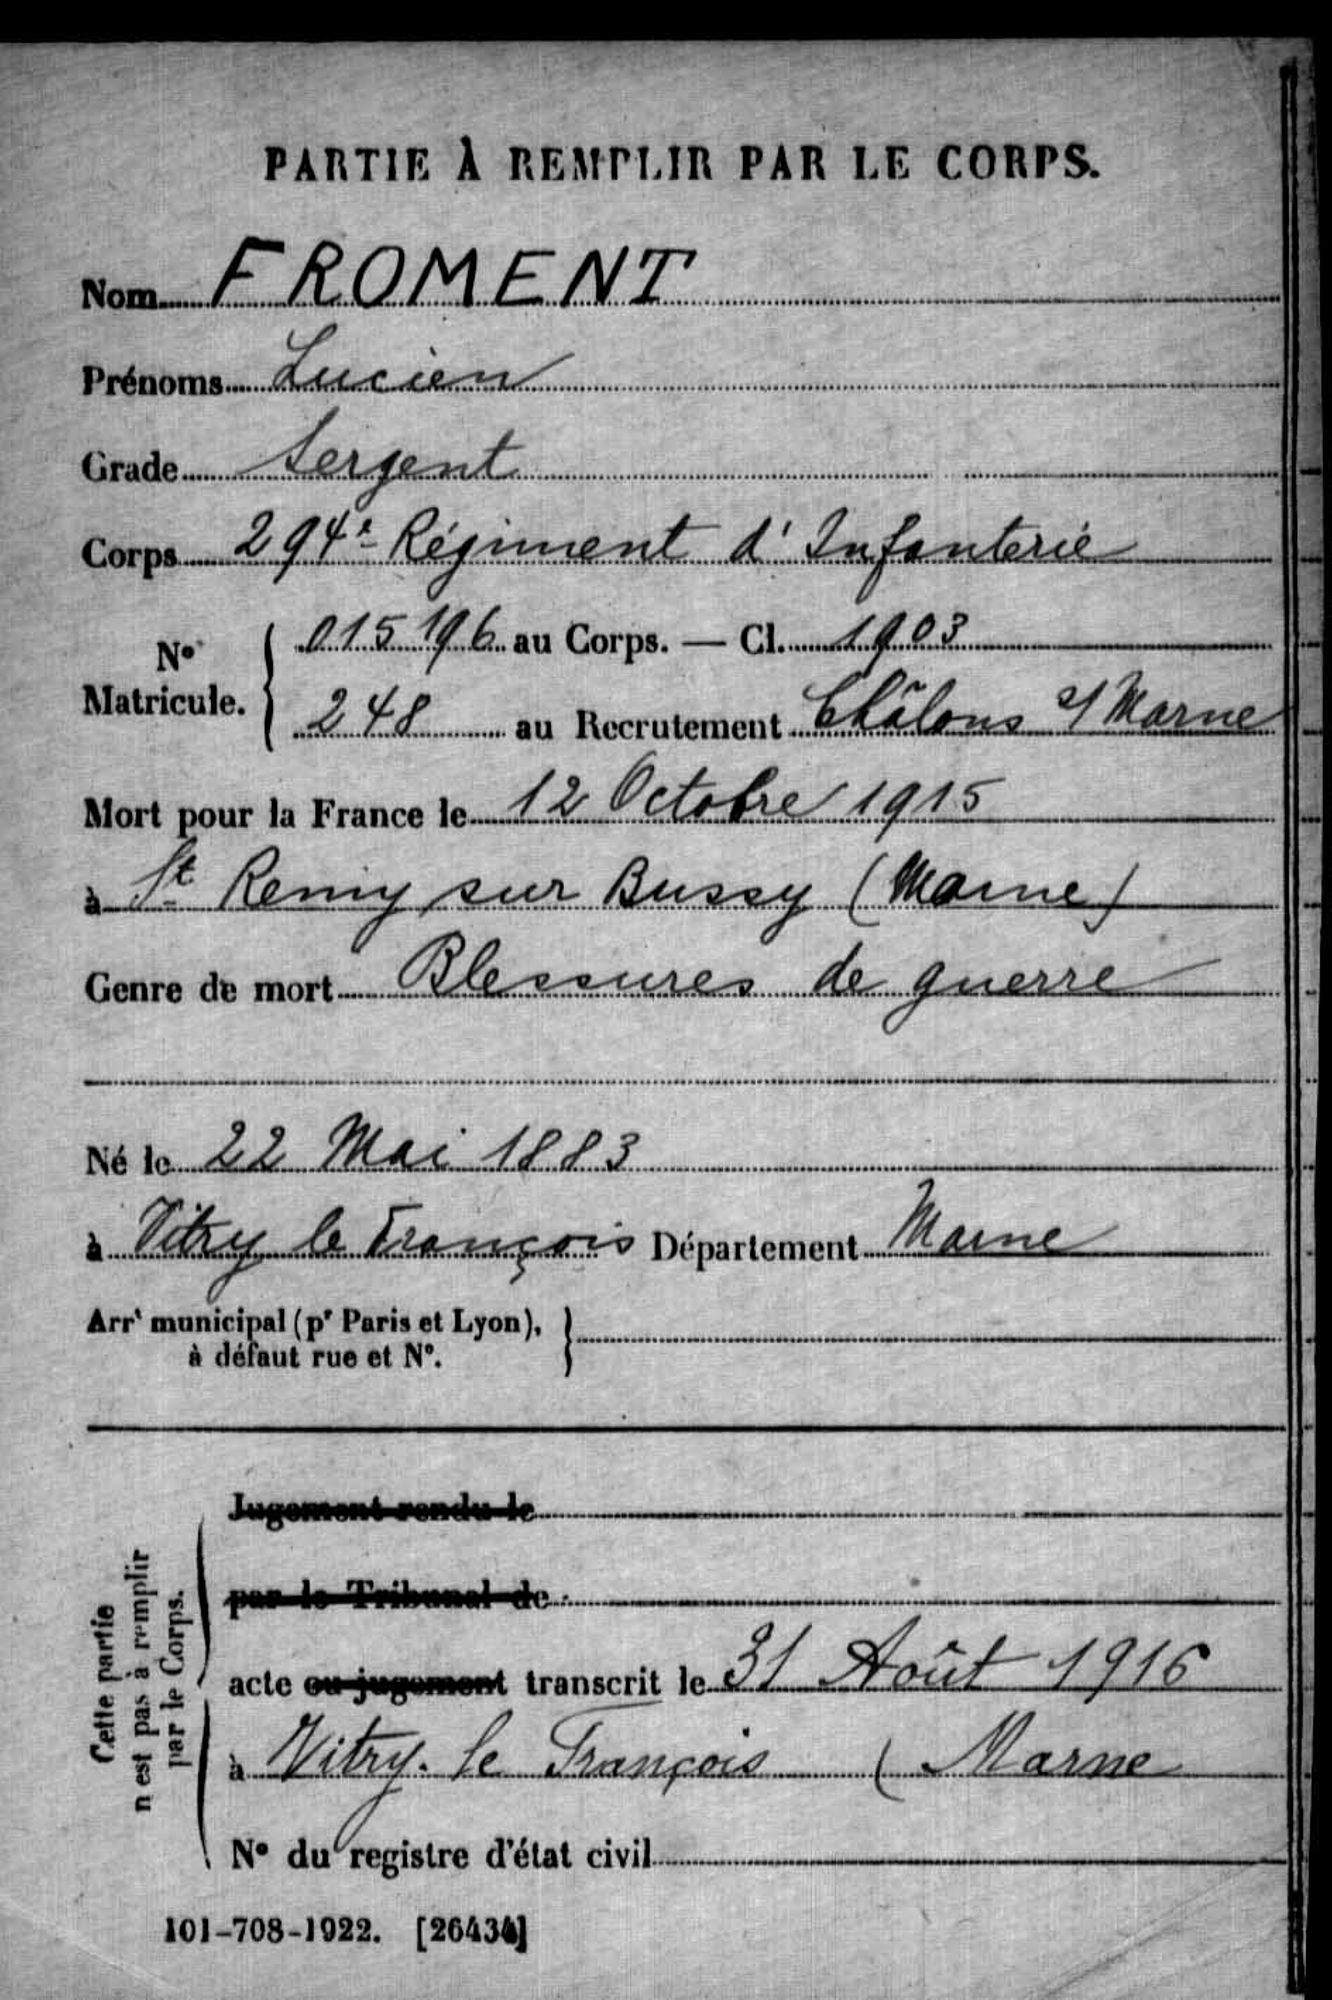 PARTIE À REMPLIR PAR LE CORPS.
Nom FROMENT
Prénoms Lucien
Grade Sergent
Corps 294e Régiment d'Infanterie
No Matricule. 015196 au Corps. — Cl. 1903
248 au Recrutement Châlons s/Marne
Mort pour la France le 12 Octobre 1915
à St Remy sur Bussy (Marne)
Genre de mort Blessures de guerre
Né le 22 Mai 1883
à Vitry le François Département Marne
Arrt municipal (pr Paris et Lyon),
à défaut rue et No.
Cette partie
n'est pas à remplir
par le Corps.
Jugement rendu le
par le Tribunal de
acte ou jugement transcrit le 31 Août 1916
à Vitry-le François (Marne
No du registre d'état civil
101-708-1922. [26434]